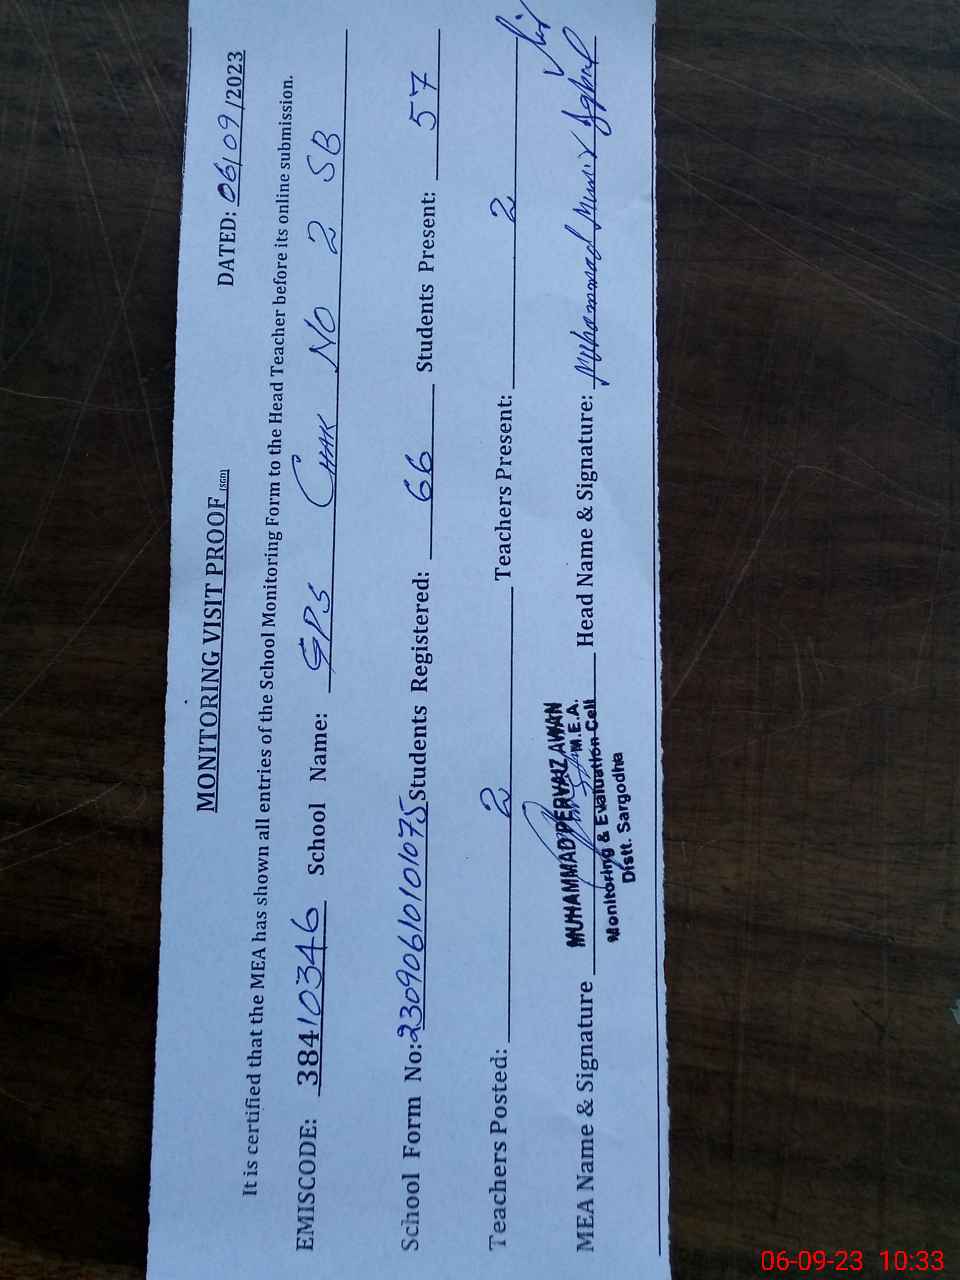 MONITORING VISIT PROOF (SGD)
DATED: 06/09/2023
It is certified that the MEA has shown all entries of the School Monitoring Form to the Head Teacher before its online submission.
EMISCODE: 38410346 School Name: GPS CHAK NO 2 SB
School Form No: 23090610101075 Students Registered: 66 Students Present: 57
Teachers Posted: 2 Teachers Present: 2
MEA Name & Signature Head Name & Signature: Muhammad Munir
MUHAMMAD PERVAIZ AWAN
M.E.A.
Monitoring & Evaluation Cell
Distt. Sargodha
06-09-23 10:33